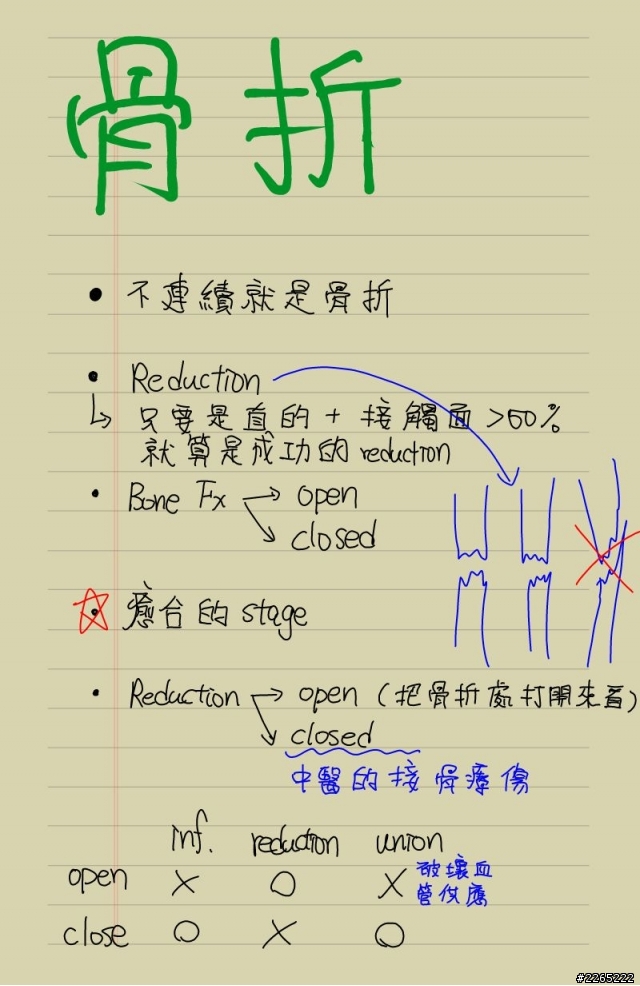 骨折
• 不連續就是骨折
• Reduction
↳ 只要是直的 + 接觸面 >50%
就算是成功的 reduction
• Bone Fx → open
↘ closed
☆ 癒合的 stage
• Reduction → open (把骨折處打開來看)
↘ closed
中醫的接骨療傷
inf. reduction union
open × ○ × 破壞血
管供應
close ○ × ○
#2265222